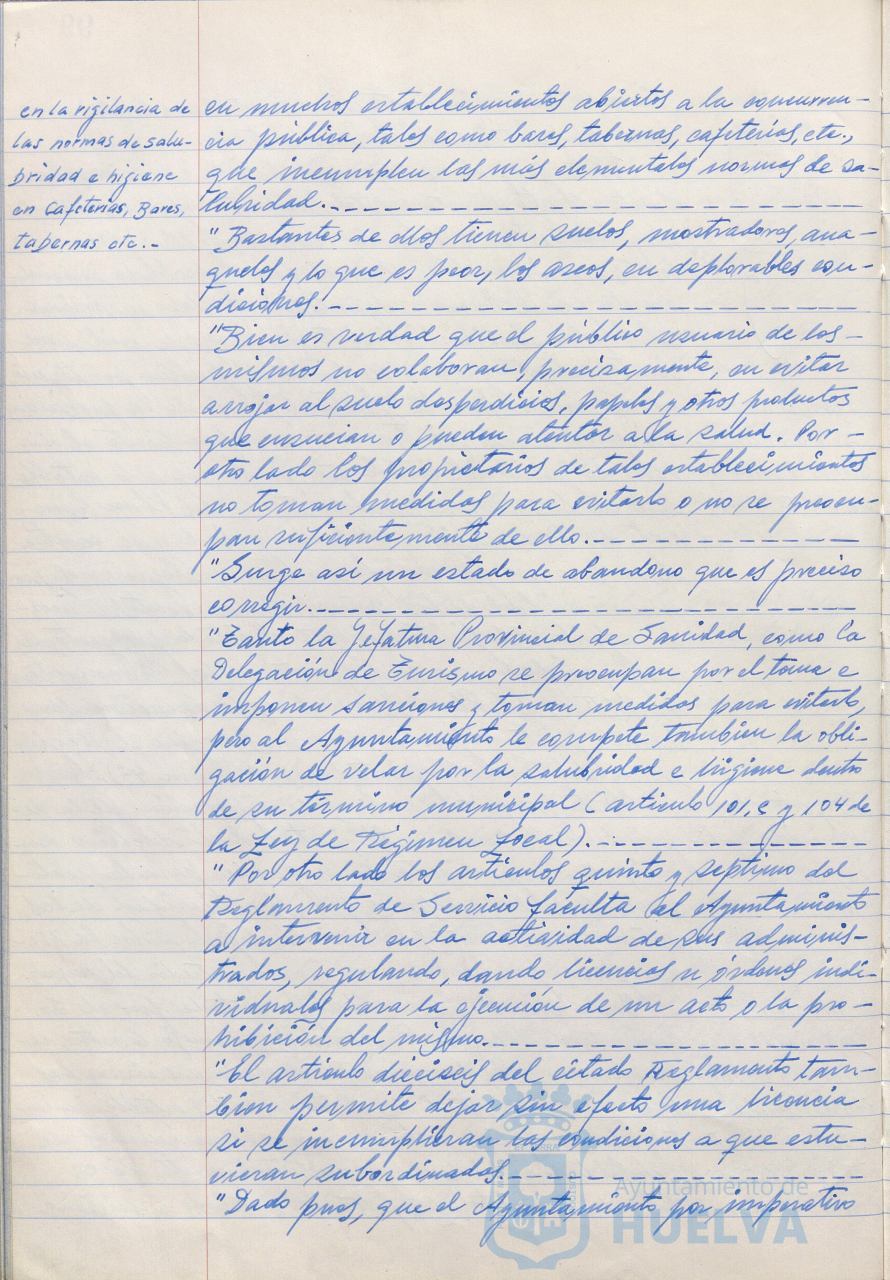 en la vigilancia de
las normas de salu-
bridad e higiene
en Cafeterías, Bares,
tabernas etc.-
en muchos establecimientos abiertos a la concurren-
cia pública, tales como bares, tabernas, cafeterías, etc.,
que incumplen las más elementales normas de sa-
lubridad.
"Bastantes de ellos tienen suelos, mostradores, ana-
queles y lo que es peor, los aseos, en deplorables con-
diciones.
"Bien es verdad que el público usuario de los-
mismos no colaboran, precisamente, en evitar
arrojar al suelo desperdicios, papeles y otros productos
que ensucian o pueden atentar a la salud. Por-
otro lado los propietarios de tales establecimientos
no toman medidas para evitarlo o no se preocu-
pan suficientemente de ello.
"Surge así un estado de abandono que es preciso
corregir.
"Tanto la Jefatura Provincial de Sanidad, como la
Delegación de Turismo se preocupan por el tema e
imponen sanciones y toman medidas para evitarlo,
pero al Ayuntamiento le compete tambien la obli-
gación de velar por la salubridad e higiene dentro
de su término municipal (artículo 101, c y 104 de
la Ley de Régimen Local).
"Por otro lado los artículos quinto y septimo del
Reglamento de Servicio faculta al Ayuntamiento
a intervenir en la actividad de sus adminis-
trados, regulando, dando licencias u órdenes indi-
viduales para la ejecución de un acto o la pro-
hibición del mismo.
"El artículo dieciseis del citado Reglamento tam-
bien permite dejar sin efecto una licencia
si se incumplieran las condiciones a que estu-
vieran subordinadas.
"Dado pues, que el Ayuntamiento por imperativo
Ayuntamiento de
HUELVA